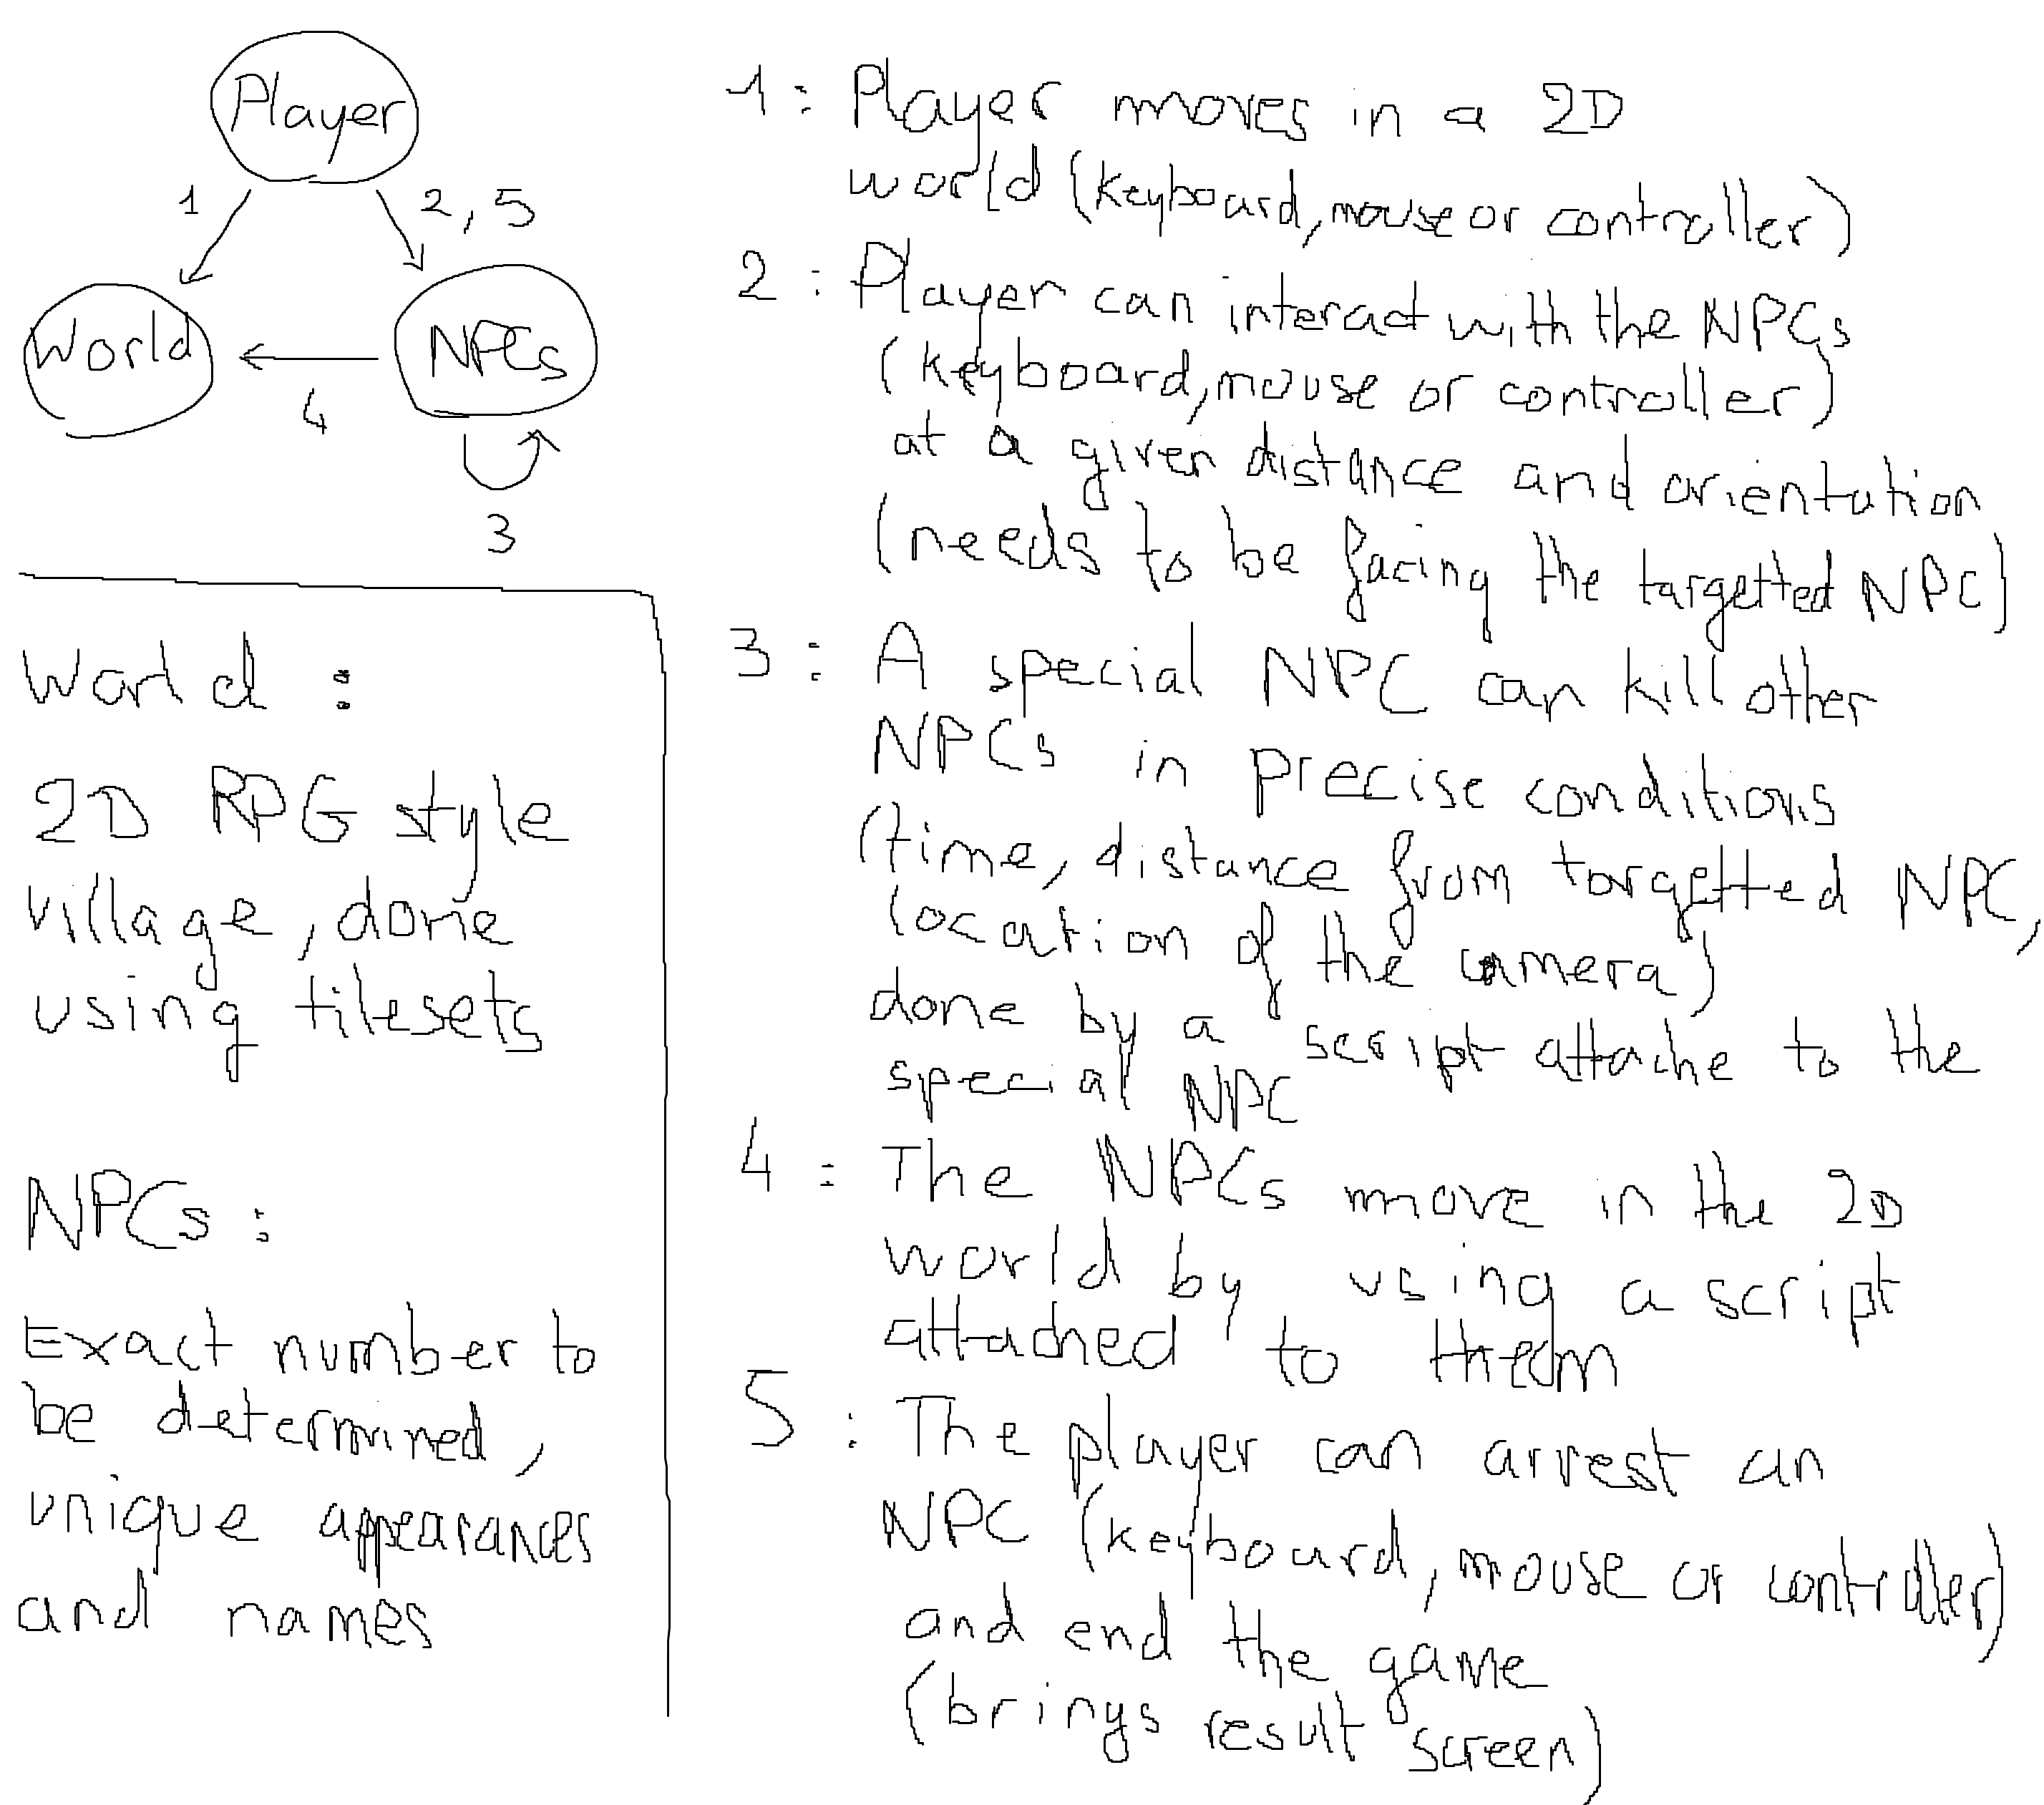 Player
1
2, 5
World
NPCs
4
3
World :
2D RPG style
village, done
using tilesets
NPCs :
Exact number to
be determined,
unique appearances
and names
1 : Player moves in a 2D
world (keyboard, mouse or controller)
2 : Player can interact with the NPCs
(keyboard, mouse or controller)
at a given distance and orientation
(needs to be facing the targetted NPC)
3 : A special NPC can kill other
NPCs in precise conditions
(time, distance from targetted NPC,
location of the camera)
done by a script attache to the
special NPC
4 : The NPCs move in the 2D
world by using a script
attached to them
5 : The player can arrest an
NPC (keyboard, mouse or controller)
and end the game
(brings result screen)